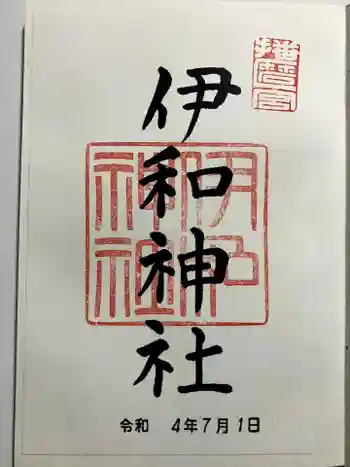 播磨一宮
伊和神社
伊和神社
令和 4年7月1日